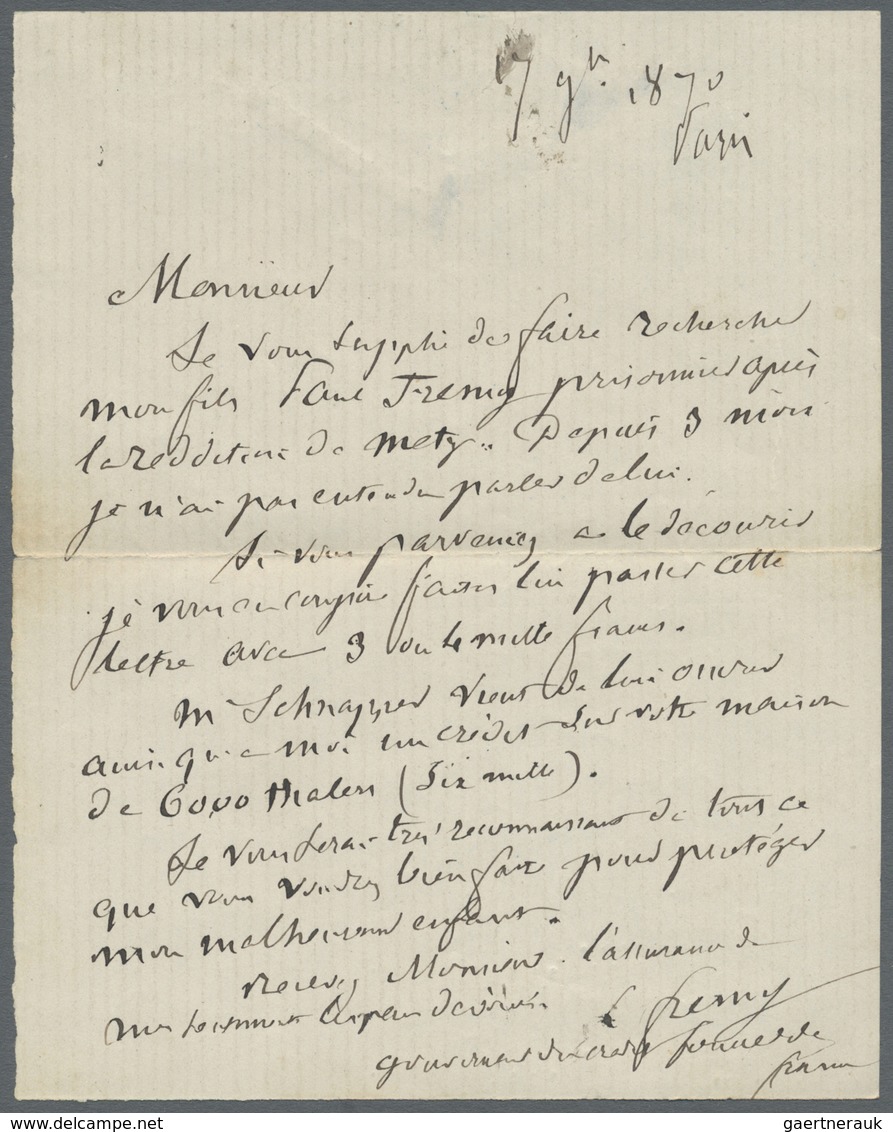 17 9br 1870
Paris
Monsieur
Je vous supplie de faire rechercher
mon fils Paul Fremy prisonnier après
la reddition de Metz. Depuis 3 mois
je n'ai pas entendu parler de lui.
Si vous parveniez a le découvrir
je vous en conjure faites lui passer cette
lettre avec 3 ou 4 mille francs.
Mr Schnapper vient de lui ouvrir
ainsi qu'a moi un crédit sur votre maison
de 6000 thalers (Six mille).
Je vous serai très reconnaissant de tout ce
que vous voudrez bien faire pour protéger
mon malheureux enfant.
Recevez Monsieur l'assurance de
mes sentiments
L Fremy
gouverneur du credit foncier de
france
gaertnerauk @ delcampe.net